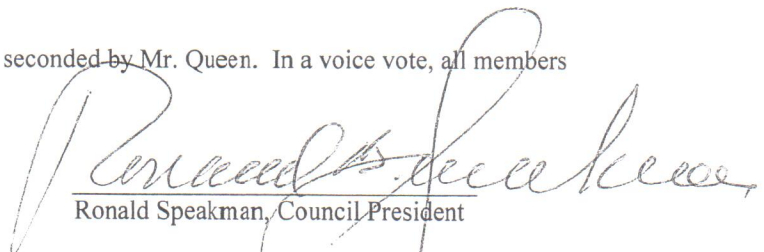 seconded by Mr. Queen. In a voice vote, all members
Ronald B. Speakman
Ronald Speakman, Council President